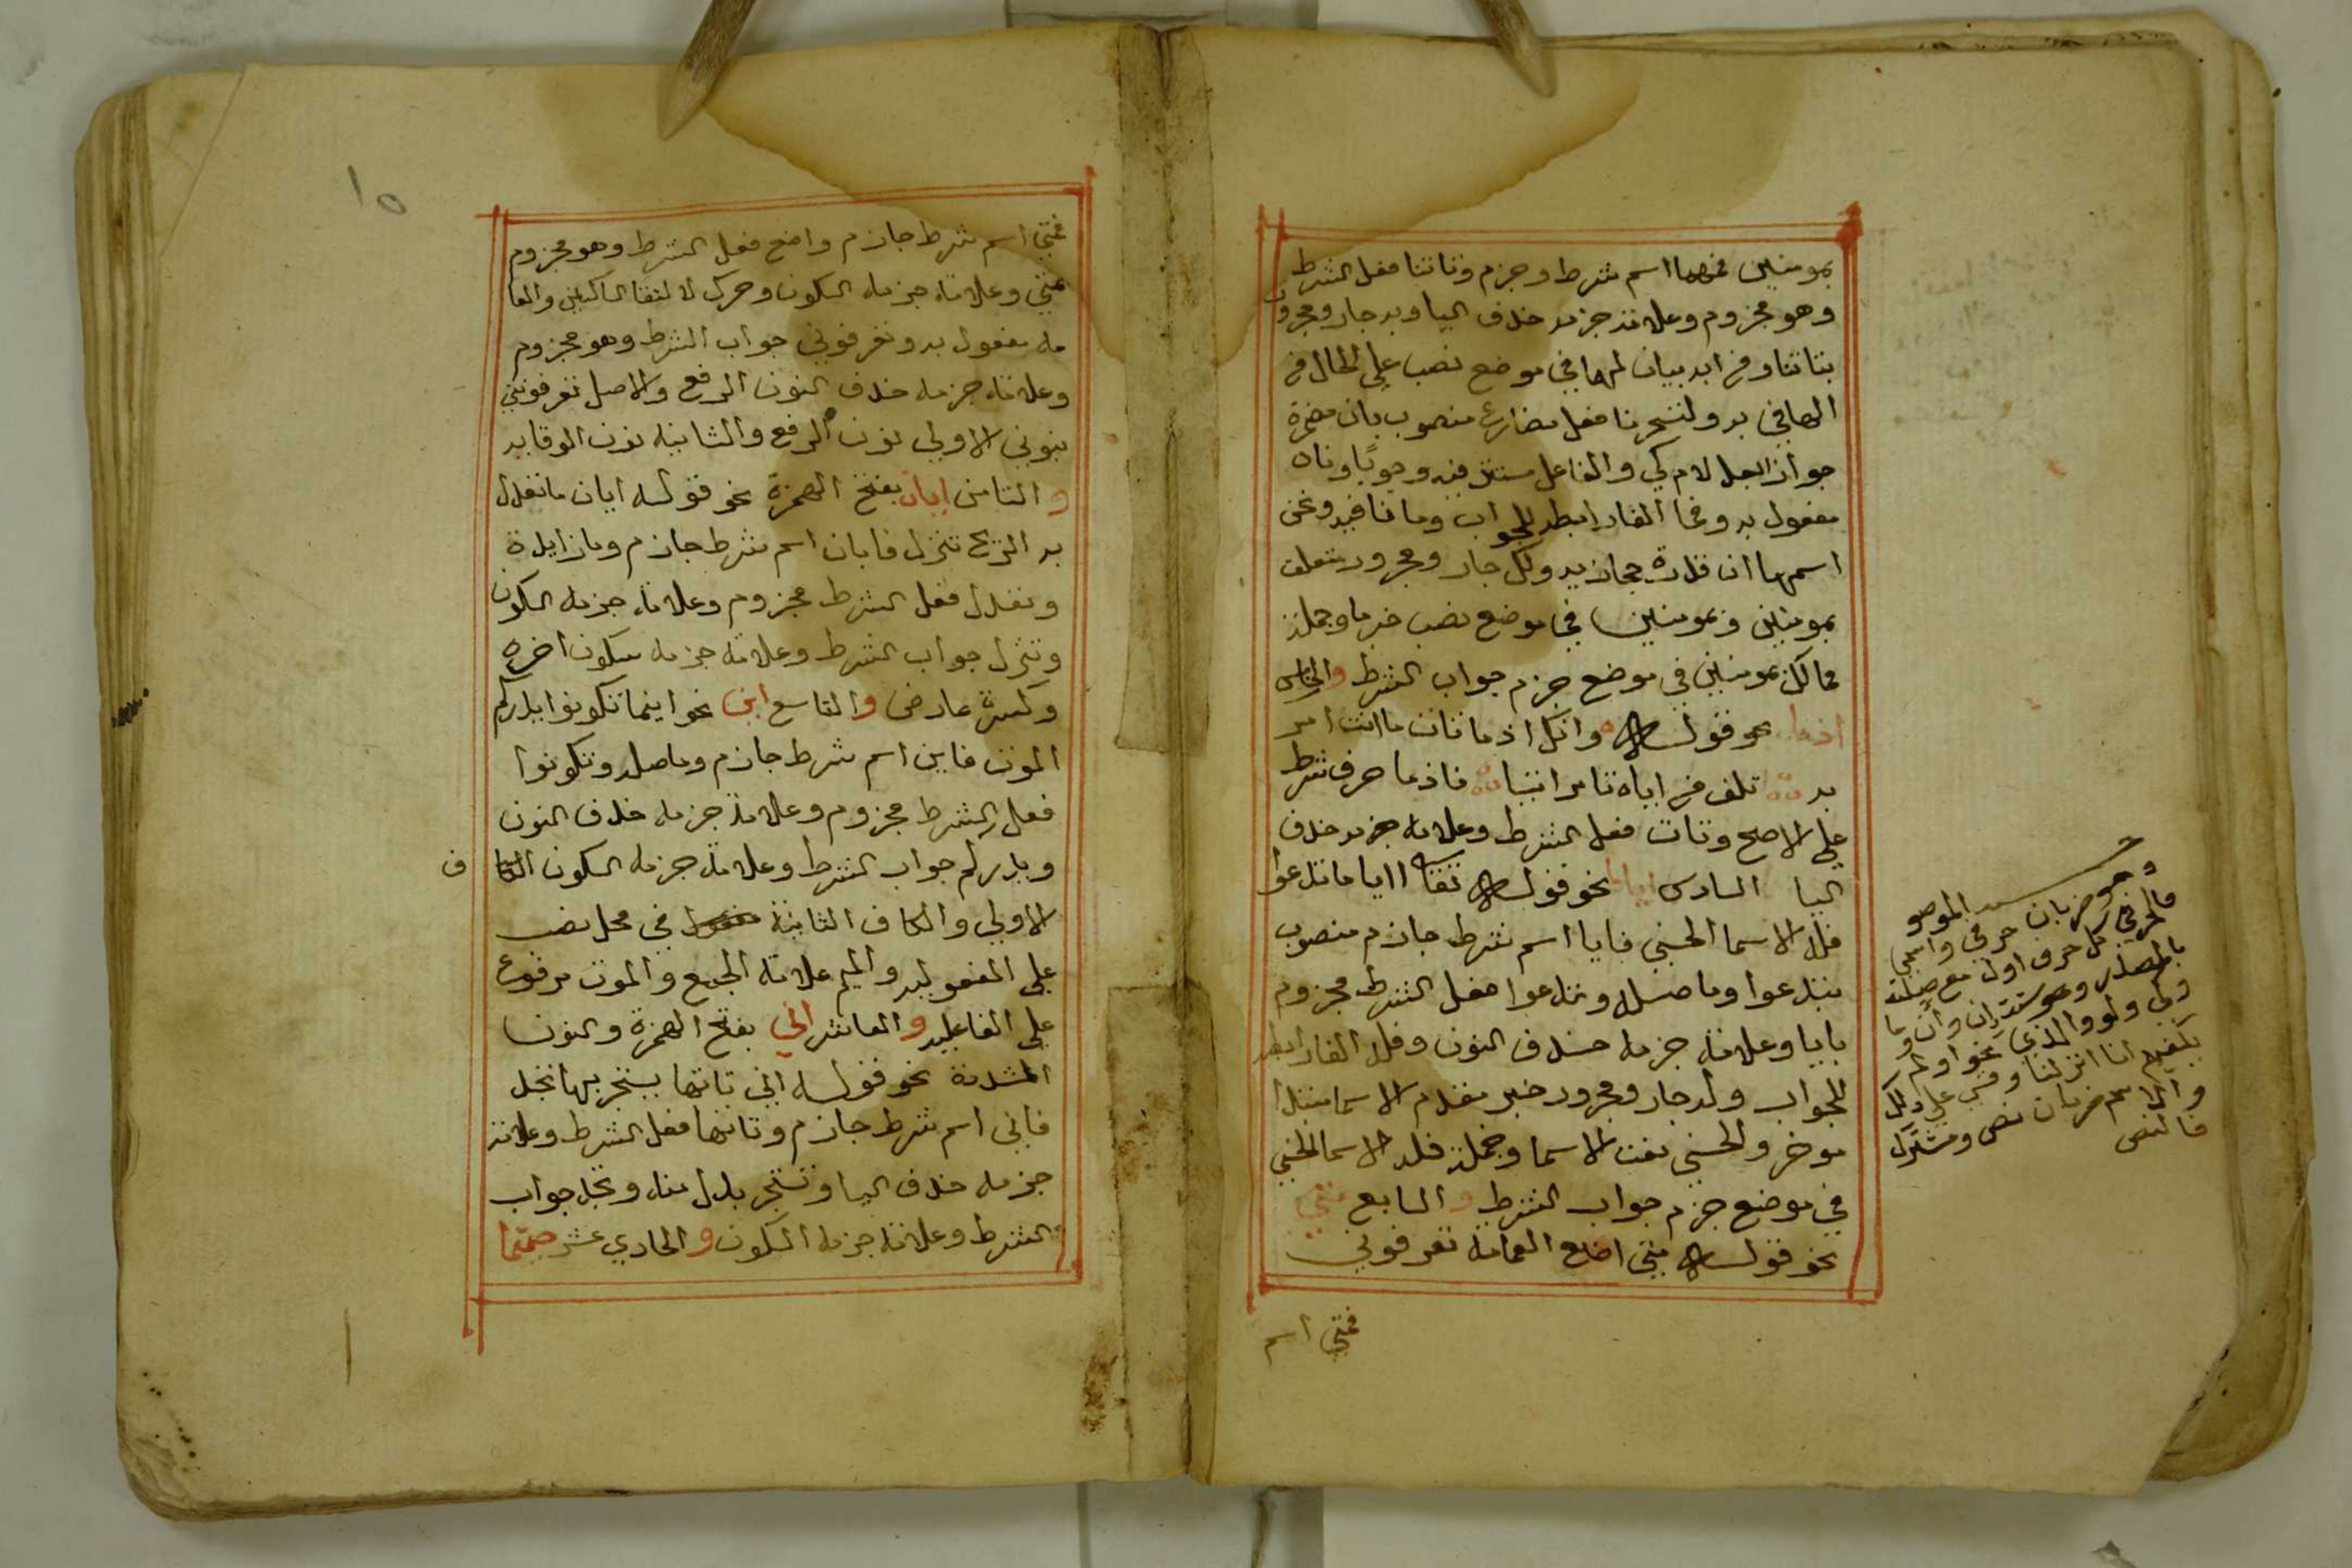 بمومنين فمهما اسم شرط وجزم وتاتنا فعل الشرط
وهو مجزوم وعلامة جزمه حذف اليا وبه جار ومجرور
بتاتنا ومن ايه بيان لمها في موضع نصب علي الحال من
الها في به ولتسحرنا فعل مضارع منصوب بان مضمرة
جوازا بعد لام كي والفاعل مستتر فيه وجوبًا ونا
مفعول به وفما الفا رابطه للجواب وما نافيه ونحن
اسمها ان قدرة حجازيه ولك جار ومجرور متعلق
بمومنين وبمومنين في موضع نصب خبرها وجملة
فما لك بمومنين في موضع جزم جواب الشرط والخامس
اذما نحو قوله وانك اذما تات ما انت امر
به تلف من اياه تامر اتيا فاذما حرف شرط
علي الاصح وتات فعل الشرط وعلامة جزمه حذف
اليا السادس ايا نحو قوله تعالي ايا ما تدعوا
فله الاسما الحسني فايا اسم شرط جازم منصوب
بتدعوا وما صله وتدعوا فعل الشرط مجزوم
بايا وعلامة جزمه حذف النون وفله الفا رابطه
للجواب وله جار ومجرور خبر مقدم الاسما مبتدا
موخر والحسني نعت الاسما وجملة فله الاسما الحسني
في موضع جزم جواب الشرط والسابع متي
نحو قوله متي اضع العمامة تعرفوني
فمتي اسم
الموصو
وهو ضربان حرفي واسمي
فالحرفي كل حرف اول مع صلته
بالمصدر وهو ستة ان وان وما
وكي ولو والذي نحو اولم
يكفهم انا انزلنا وقس علي ذلك
والاسم ضربان نص ومشترك
فالنص
١٥
فمتي اسم شرط جازم واضع فعل الشرط وهو مجزوم
بمتي وعلامة جزمه السكون وحرك لالتقا الساكنين والعما
مه مفعول به وتعرفوني جواب الشرط وهو مجزوم
وعلامة جزمه حذف النون الرفع والاصل تعرفونني
بنوني الاولي نون الرفع والثانية نون الوقايه
والثامن ايان بفتح الهمزة نحو قوله ايان ما تعدل
به الريح تنزل فايان اسم شرط جازم وما زايدة
وتعدل فعل الشرط مجزوم وعلامة جزمه السكون
وتنزل جواب الشرط وعلامة جزمه سكون اخره
وكسرة عارض والتاسع اين نحو اينما تكونوا يدرككم
الموت فاين اسم شرط جازم وما صله وتكونوا
فعل الشرط مجزوم وعلامة جزمه حذف النون
ويدرككم جواب الشرط وعلامة جزمه السكون الكا ف
الاولي والكاف الثانية في محل نصب
علي المفعوليه والميم علامة الجمع والموت مرفوع
علي الفاعليه والعاشر اني بفتح الهمزة والنون
المشدة نحو قوله اني تاتها يستجر بها تجد
فاني اسم شرط جازم وتاتها فعل الشرط وعلامة
جزمه حذف اليا وتستجر بدل منه وتجد جواب
الشرط وعلامة جزمه السكون والحادي عشر حيثما